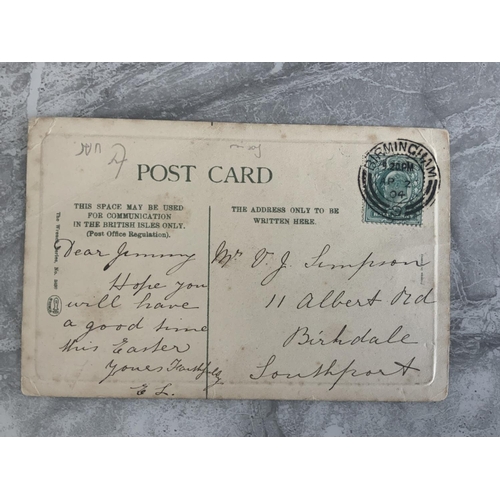 POST CARD
THIS SPACE MAY BE USED
FOR COMMUNICATION
IN THE BRITISH ISLES ONLY.
(Post Office Regulation).
THE ADDRESS ONLY TO BE
WRITTEN HERE.
BIRMINGHAM
AP 2
04
Dear Jimmy
Hope you
will have
a good time
this Easter
Yours Faithfully
E L.
Mr V. J. Simpson
11 Albert Rd
Birkdale
Southport